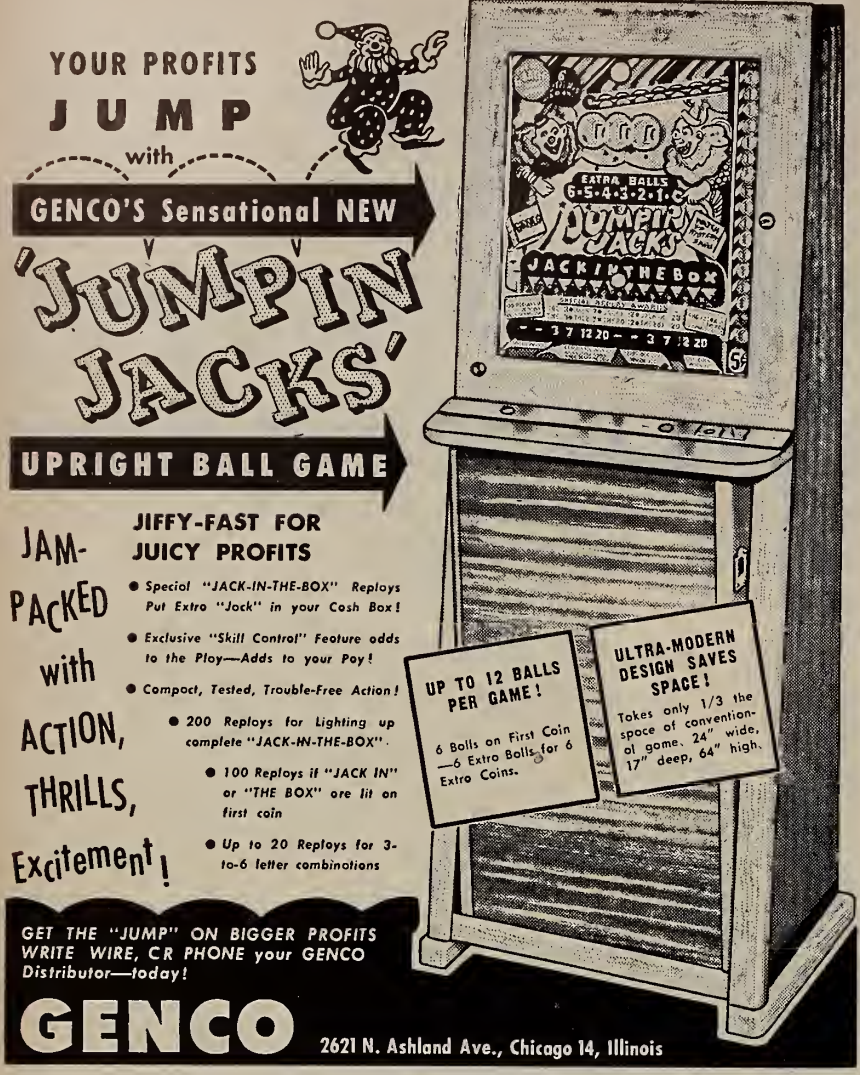 YOUR PROFITS
JUMP
with
GENCO'S Sensational NEW
'JUMPIN
JACKS'
UPRIGHT BALL GAME
JAM-
PACKED
with
ACTION,
THRILLS,
Excitement!
JIFFY-FAST FOR
JUICY PROFITS
● Special "JACK-IN-THE-BOX" Replays
Put Extra "Jack" in your Cash Box!
● Exclusive "Skill Control" Feature adds
to the Play—Adds to your Pay!
● Compact, Tested, Trouble-Free Action!
● 200 Replays for Lighting up
complete "JACK-IN-THE-BOX".
● 100 Replays if "JACK IN"
or "THE BOX" are lit on
first coin
● Up to 20 Replays for 3-
to-6 letter combinations
EXTRA BALLS
6-5-4-3-2-1
JUMPIN
JACKS
JACK IN THE BOX
- - 3 7 12 20 - - 3 7 12 20
5¢
UP TO 12 BALLS
PER GAME!
6 Balls on First Coin
—6 Extra Balls for 6
Extra Coins.
ULTRA-MODERN
DESIGN SAVES
SPACE!
Takes only 1/3 the
space of convention-
al game, 24" wide,
17" deep, 64" high.
GET THE "JUMP" ON BIGGER PROFITS
WRITE WIRE, CR PHONE your GENCO
Distributor—today!
GENCO
2621 N. Ashland Ave., Chicago 14, Illinois